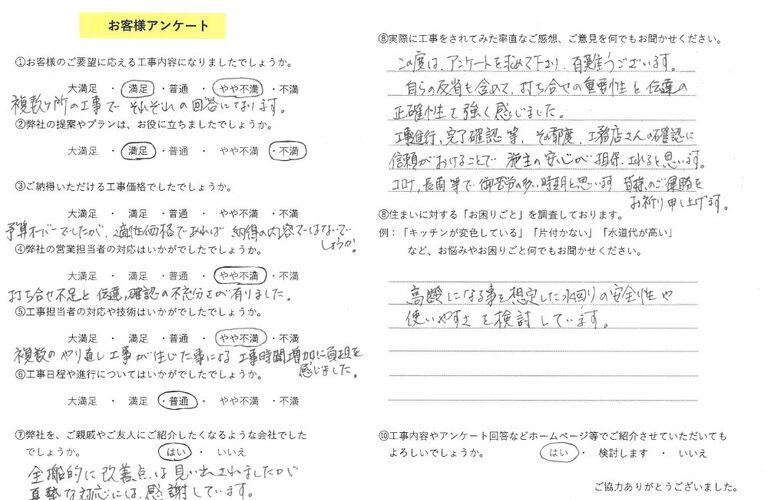 お客様アンケート
①お客様のご要望に応える工事内容になりましたでしょうか。
大満足 ・ 満足 ・ 普通 ・ やや不満 ・ 不満
複数ヶ所の工事で それぞれの回答になります。
②弊社の提案やプランは、お役に立ちましたでしょうか。
大満足 ・ 満足 ・ 普通 ・ やや不満 ・ 不満
③ご納得いただける工事価格でしたでしょうか。
大満足 ・ 満足 ・ 普通 ・ やや不満 ・ 不満
予算オーバーでしたが、適性価格であれば 納得の内容ではないで
しょうか
④弊社の営業担当者の対応はいかがでしたでしょうか。
大満足 ・ 満足 ・ 普通 ・ やや不満 ・ 不満
打ち合せ不足と伝達、確認の不充分さが有りました。
⑤工事担当者の対応や技術はいかがでしたでしょうか。
大満足 ・ 満足 ・ 普通 ・ やや不満 ・ 不満
複数のやり直し工事が生じた事による 工事時間増加に負担を
感じました。
⑥工事日程や進行についてはいかがでしたでしょうか。
大満足 ・ 満足 ・ 普通 ・ やや不満 ・ 不満
⑦弊社を、ご親戚やご友人にご紹介したくなるような会社でした
でしょうか。 はい ・ いいえ
全般的に改善点は見い出されましたが
真摯な対応には、感謝しています。
⑧実際に工事をされてみた率直なご感想、ご意見を何でもお聞かせください。
この度は、アンケートを求めて下さり、有難うございます。
自らの反省も含めて、打ち合せの重要性と伝達の
正確性を強く感じました。
工事進行、完了確認等、その都度、工務店さんの確認に
信頼がおけることで 施主の安心が担保されると思います。
コロナ、長雨等で御苦労の多い時期と思います 皆様のご健勝を
お祈り申し上げます。
⑧住まいに対する「お困りごと」を調査しております。
例：「キッチンが変色している」「片付かない」「水道代が高い」
など、お悩みやお困りごと何でもお聞かせください。
高齢になる事を想定した水回りの安全性や
使いやすさを検討しています。
⑩工事内容やアンケート回答などホームページ等でご紹介させていただいても
よろしいでしょうか。 はい ・ 検討します ・ いいえ
ご協力ありがとうございました。